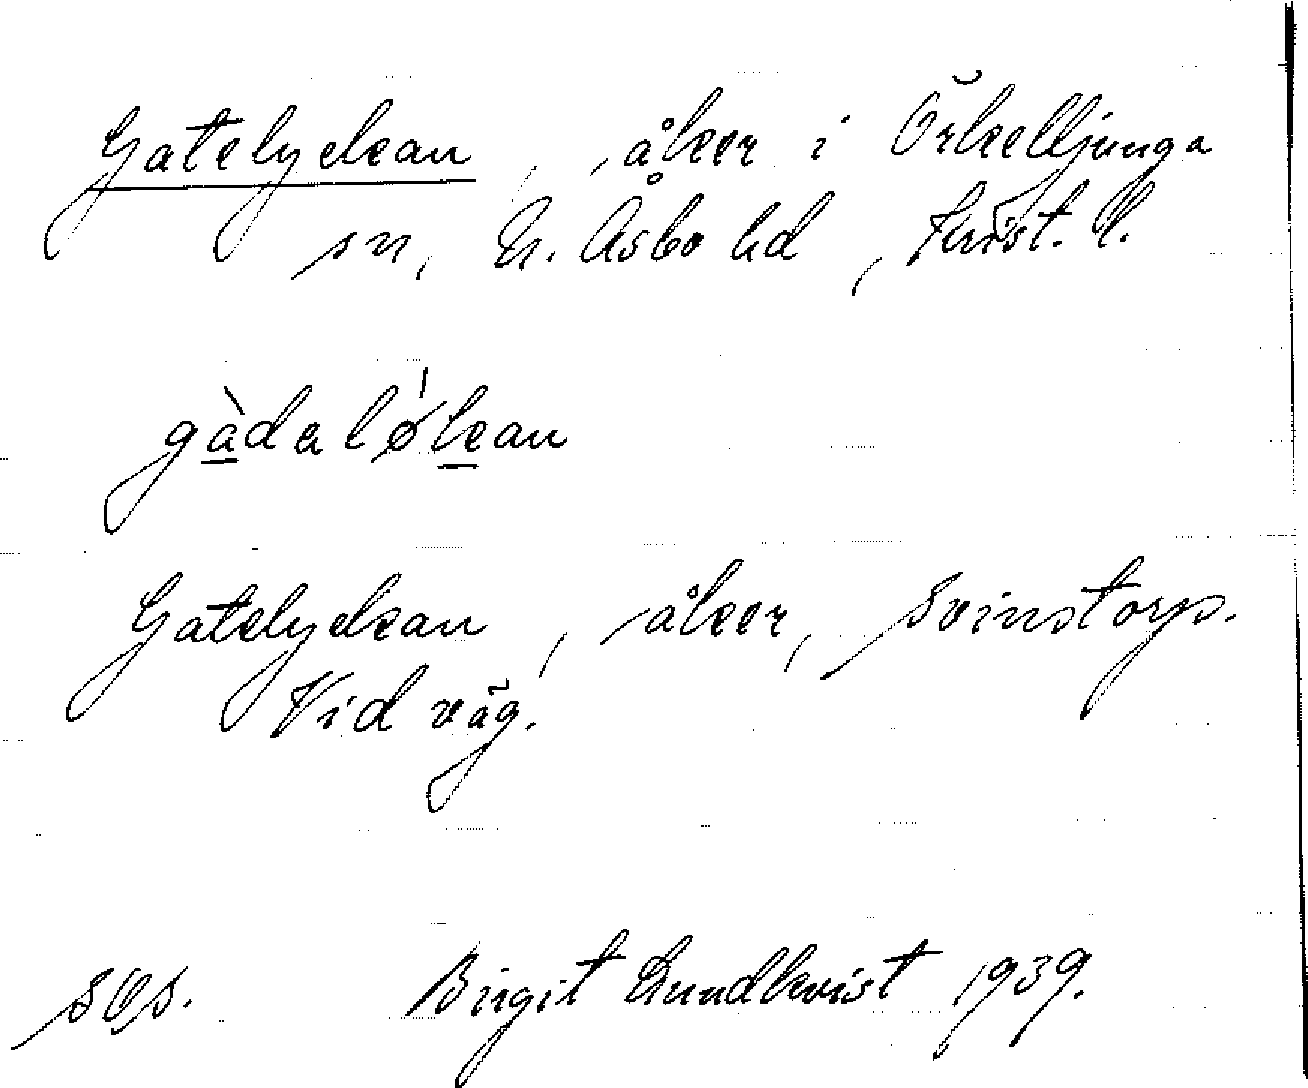 Gatelyckan, åker i Örkelljunga
sn, N. Åsbo hd, Krist. l.
gàdaløkan
Gatelyckan, åker, Svinstorp.
Vid väg.
Birgit Lundkvist 1939.